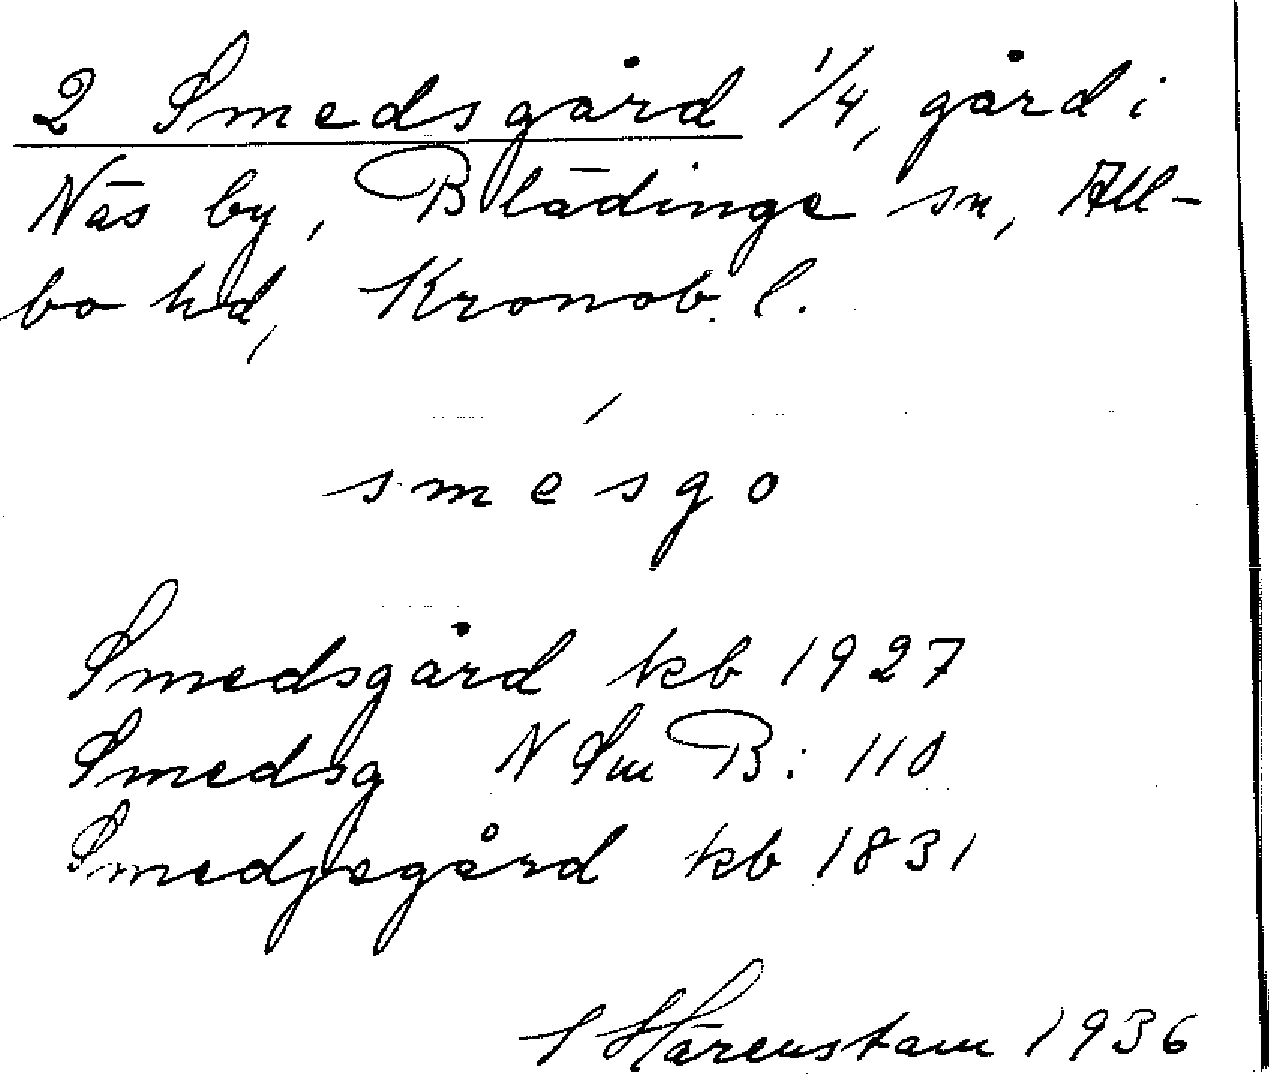 2 Smedsgård 1/4, gård i
Näs by, Blädinge sn, All-
bo hd, Kronob. l.
smésgo
Smedsgård kb 1927
Smedsg NSmB: 110
Smedjegård kb 1831
Härenstam 1936